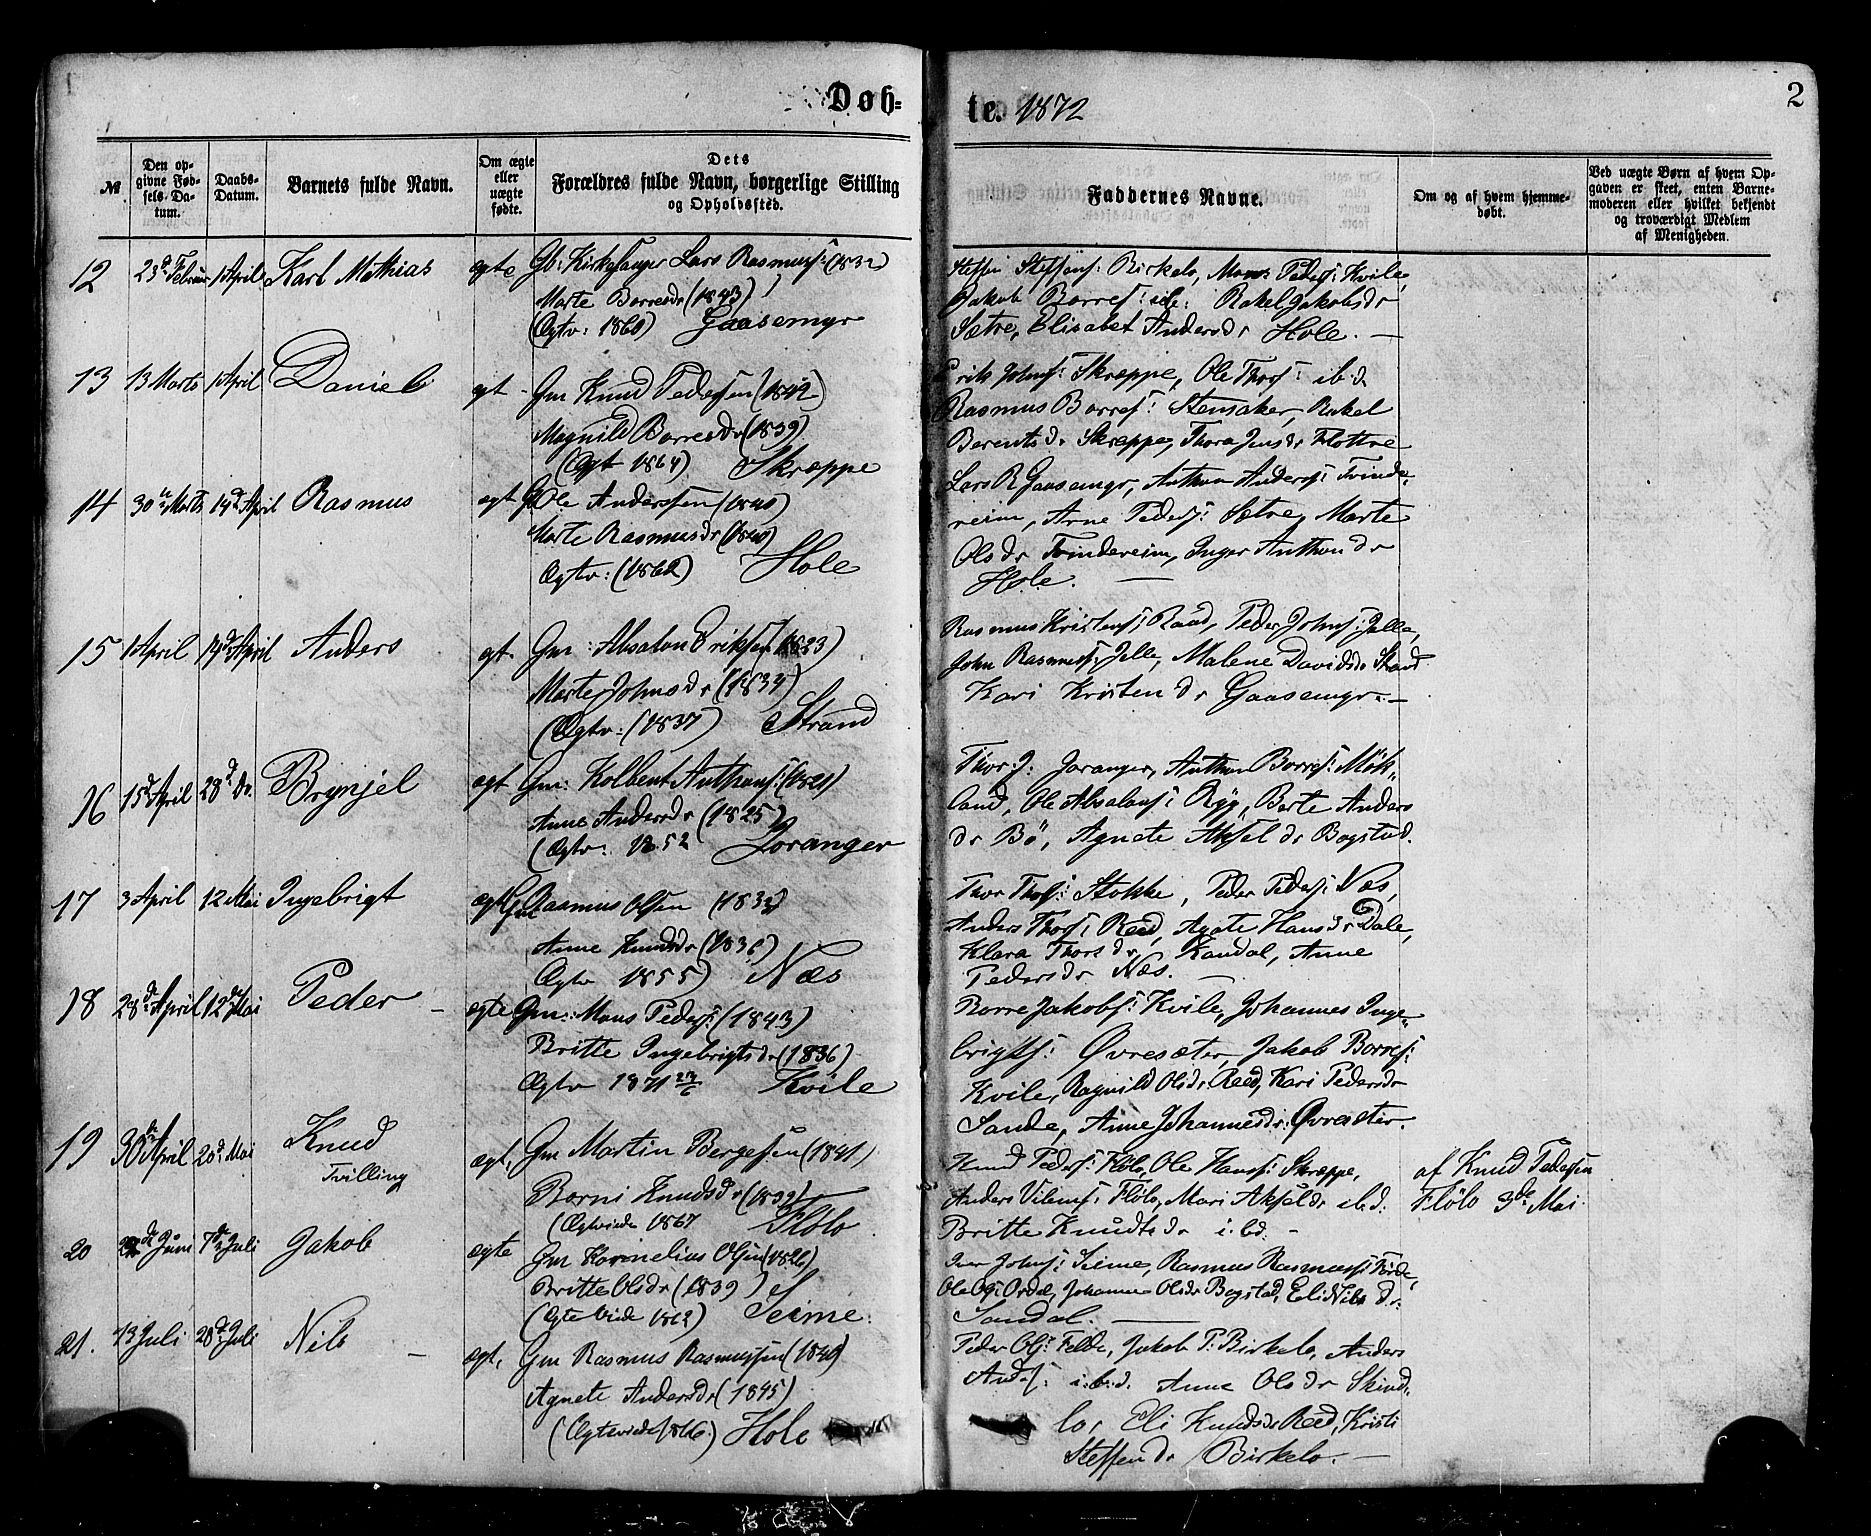 Døb=
te. 1872
2
№
Den op-
givne Fød-
sels-Da-
tum.
Daabs-
Datum.
Barnets fulde Navn.
Om ægte
eller
uægte
fødte.
Dets
Forældres fulde Navn, borgerlige Stilling
og Opholdssted.
Faddernes Navne.
Om og af hvem hjemme-
døbt.
Ved uægte Børn af hvem Op-
gaven er skeet, enten Barne-
moderen eller hvilket bekjendt
og troværdigt Medlem
af Menigheden.
12 23d Februar 1 April Karl Mathias ægte Gb: Kirkesanger Lars Rasmuss: (1832)
Marte Borresdr (1843)
(Ægtv: 1860) Gaasemyr
Steffen Steffens: Birkelo, Mons Peders: Kvile,
Jakob Borres: ib: Rakel Jakobsdr
Sætre, Elisabet Andersdr Hole. —
13 13 Marts 1 April Daniel ægt - Gm Knud Pedersen (1842)
Magnild Borresdr (1839)
(Ægt 1864) Skræppe
Erik Johns: Skræppe, Ole Thors: ibd.
Rasmus Borres: Stensaker, Rakel
Berentsdr Skræppe, Thora Jensdr Flottre
14 30te Marts 14de April Rasmus ægt Gm Ole Anderssen (1840)
Marte Rasmusdr (1840)
Ægtv: (1862) Hole
Lars R Gaasemyr, Anthon Anders: Tvinde-
reim, Arne Peders: Sætre, Marte
Olsdr Tvindereim, Inger Anthondr
Hole. —
15 1 April 14de April Anders ægt. Gm: Absalon Eriksen (1823)
Marte Johnsdr (1834)
(Ægtv: (1857) Strand
Rasmus Kristens: Raad, Peder Johns: Jelle,
John Rasmuss: Jelle, Malene Davidsdr Strand
Kari Kristendr Gaasemyr. —
16 15d April 28de Do. Brynjel ægt Gm: Kolbent Anthons: (1821)
Anne Andersdr (1825)
(Ægtv: 1852 Loranger
Thor J: Joranger, Anthon Borres: Møk-
land, Ole Absalons: Ryg, Berte Anders
dr Bö, Agnete Akseldr Bogstad.
17 3 April 12 Mai Ingebrigt ægt Gm Rasmus Olsen (1832)
Anne Knudsdr (1836)
Ægtv 1855) Næs
Thor Thors: Stokke, Peder Peders: Næs,
Anders Thors: Reed, Agate Hansdr Dale,
Klara Thorsdr, Kandal, Anne
Pedersdr Næs. —
18 28de April 12de Mai Peder - ægte Gm: Mons Peders: (1843)
Britte Ingebrigtsdr (1836)
Ægtv 1871 Kvile
Borre Jakobs: Kvile, Johannes Inge-
brigts: Øvresæter, Jakob Borres:
Kvile, Ragnild Olsdr Reed, Kari Pedersdr
Sande, Anne Johannesdr: Øvresæter.
19 30te April 20de Mai Knud
Tvilling
ægt, Gm Martin Bergessen (1841)
Borni Knudsdr (1839)
(Ægteviede 1867 Flölo
Knud Peders: Flölo, Ole Hanss: Skræppe,
Anders Vilums: Flölo, Mari Akseldr ibd.
Britte Knudtsdr i:bd. -
af Knud Pedersen
Flölo 3de Mai
20 Juni 7de Juli Jakob ægte Gm Kornelius Olsen (1826)
Britte Olsdr (1839)
(Ægte viede 1862) Seime.
Iver Johns: Seime, Rasmus Rasmuss: Förde,
Ole Ols: Ordal, Johanne Olsdr Bogstad, Eli Nilsdr:
Sandal. —
21. 13 Juli 28de Juli Nils - ægt, Gm Rasmus Rasmussen (1840)
Agnete Andersdr (1845)
(Ægteviede 1866.) Hole
Peder Ols: Felde, Jakob P: Birkelo, Anders
Ands: i.b.d. Anne Olsdr Skind-
lo, Eli Knudsdr Reed, Kristi
Steffendr Birkelo. —